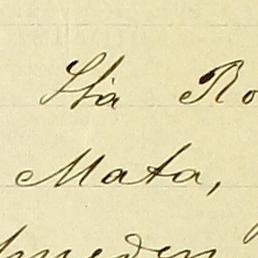 Sta Ro
Mata,